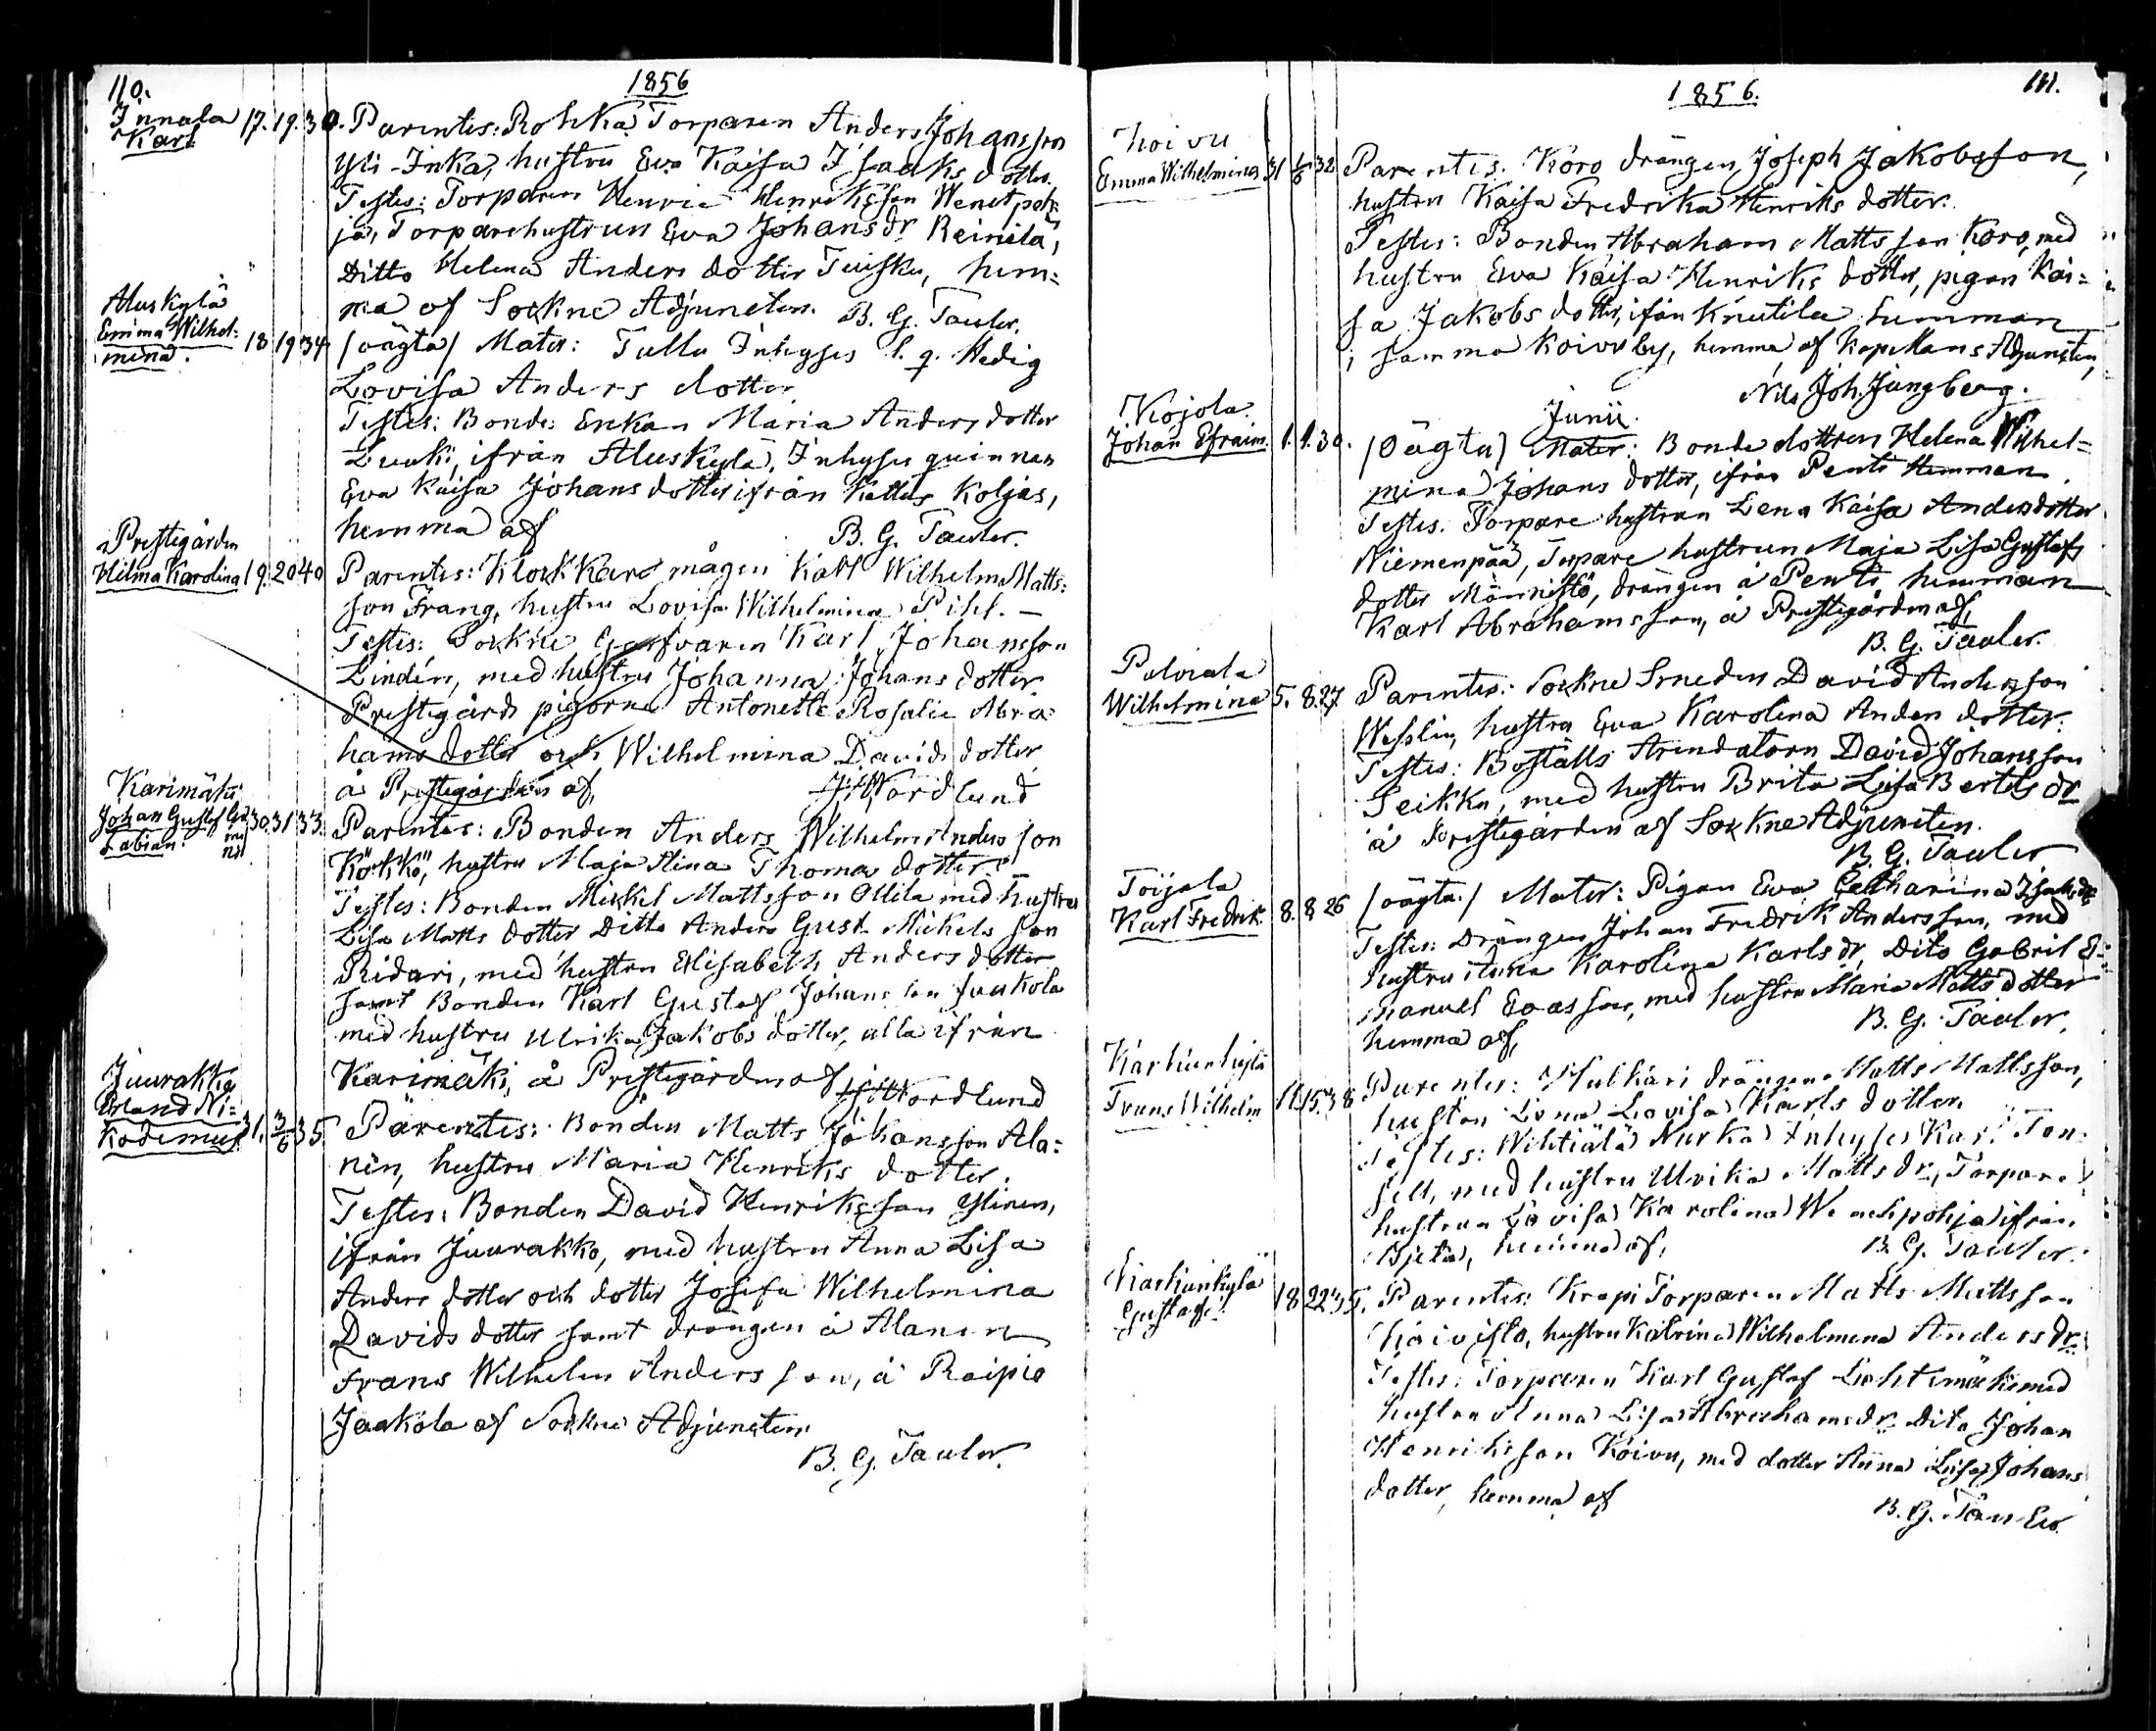 110.
1856
Innala
Karl 17. 19. 30. Parentes: Rohka Torparen Anders Johansson
Yli-Inka, hustru Eva Kaisa Isaaks dotter.
Testes: Torparen Henric Henriksson Wenetpoh=
ja, Torparehustrun Eva Johans dr Reinilä,
Ditto Helena Anders dotter Tuisku, hem=
ma af Sockne Adjuncten. B. G. Tauler.
Aluskylä
Emma Wilhel=
mina. 18 19 34 (oägta) Mater: Tullu Inhyses l. q. Hedig
Lovisa Anders dotter
Testes: Bonde Enkan Maria Anders dotter
Luuki, ifrån Aluskylä, Inhyses quinnan
Eva Kaisa Johans dotter ifrån Kattus Koljas,
hemma af B. G. Tauler.
Prestegården
Hilma Karolina 19. 20 40 Parentes: Klockkars mågen Karl Wilhelm Matts=
son Frang, hustru Lovisa Wilhelmina Pihl. —
Testes: Sockne Garfvaren Karl Johansson
Lindén, med hustru Johanna Johans dotter
Prestegårds pigorna Antonette Rosalie Abra=
hams dotter och Wilhelmina Davids dotter
å Prestegården af, Nordlund
Karimäki
Johan Gustaf
Fabian. 30. 31 33. Parentes: Bonden Anders Wilhelm Anders son
Körkkö, hustru Maja Stina Thomas dotter.
Testes: Bonden Mickel Mattsson Ollila med hustru
Lisa Matts dotter Ditto Anders Gust. Mickels son
Ridari, med hustru Elisabeth Anders dotter
samt Bonden Karl Gustaf Johans son Jaakola
med hustru Ulrika Jakobs dotter, alla ifrån
Karimäki, å Prestegården af Nordlund
Juurakko
Erland Ni=
kodemus 31. 3/6 35. Parentes: Bonden Matts Johansson Ala=
nen, hustru Maria Henriks dotter.
Testes: Bonden David Henriksson Ylinen,
ifrån Juurakko, med hustru Anna Lisa
Anders dotter och dotter Josefa Wilhelmina
Davids dotter samt drängen å Alanen
Frans Wilhelm Anders son, å Raipio
Jaakola af Sockne Adjuncten
B. G. Tauler.
111.
1856.
Koivu
Emma Wilhelmina 31 1/6 32 Parentes. Koro drängen, Joseph Jakobsson,
hustru Kaisa Fredrika Henriks dotter.
Testes: Bonden Abraham Mattsson Koro, med
hustru Eva Kaisa Henriks dotter, pigan Kai=
sa Jakobs dotter, ifrån Knutila hemman
i samma Koivu by, hemma af Kapellans Adjuncten,
Nils Joh. Jungberg.
Junii.
Kojola.
Johan Efraim. 1. 1. 30. (Oägta) Mater: Bonde dottren Helena Wilhel=
mina Johans dotter, ifrån Penti Hemman.
Testes: Torpare hustrun Lena Kaisa Andersdotter
Niemenpää, Torpare hustrun Maja Lisa Gustafs
dotter Männistö, drängen å Penti hemman
Karl Abrahamsson, å Prestegården af,
B. G. Tauler.
Wilhelmina 5. 8. 27. Parentes: Sockne Smeden David Andersson
Wesslin, hustru Eva Karolina Anders dotter.
Testes: Boställs Arendatorn David Johansson
Seikku, med hustru Brita Lisa Bertels dr
å Prestegården af Sockne Adjuncten.
B. G. Tauler
Toijala
Karl Fredrik 8. 8 26 (oägta) Mater: Pigan Eva Catharina Isaks dr
Testes: Drängen Johan Fredrik Andersson, med
hustru Karolina Karls dr, Dito Gabriel E=
manuel Evasson, med hustru Maria Matts dotter
hemma af, B. G. Tauler.
Karhunkylä
Frans Wilhelm 11. 15. 38 Parentes: drängen Matts Mattsson,
hustru Lovisa Karls dotter.
Testes: Inhyses Karl Ton=
sell, med hustru Ulrika Matts dr, Torpare
hustrun Lovisa Karolina Wenetpohja ifrån
hemma af, B. G. Tauler.
Karhunkylä
Gustaf. 18 22 35. Parentes: Krapi Torparen Matts Mattsson
Koivisto, hustru Katrina Wilhelmina Anders dr.
Testes: Torparen Karl Gustaf Lehtimäki med
hustru Anna Lisa Abrahams dr. Dito Johan
Henriksson Koivu, med dotter Anna Lisa Johans
dotter, hemma af B. G. Tauler.